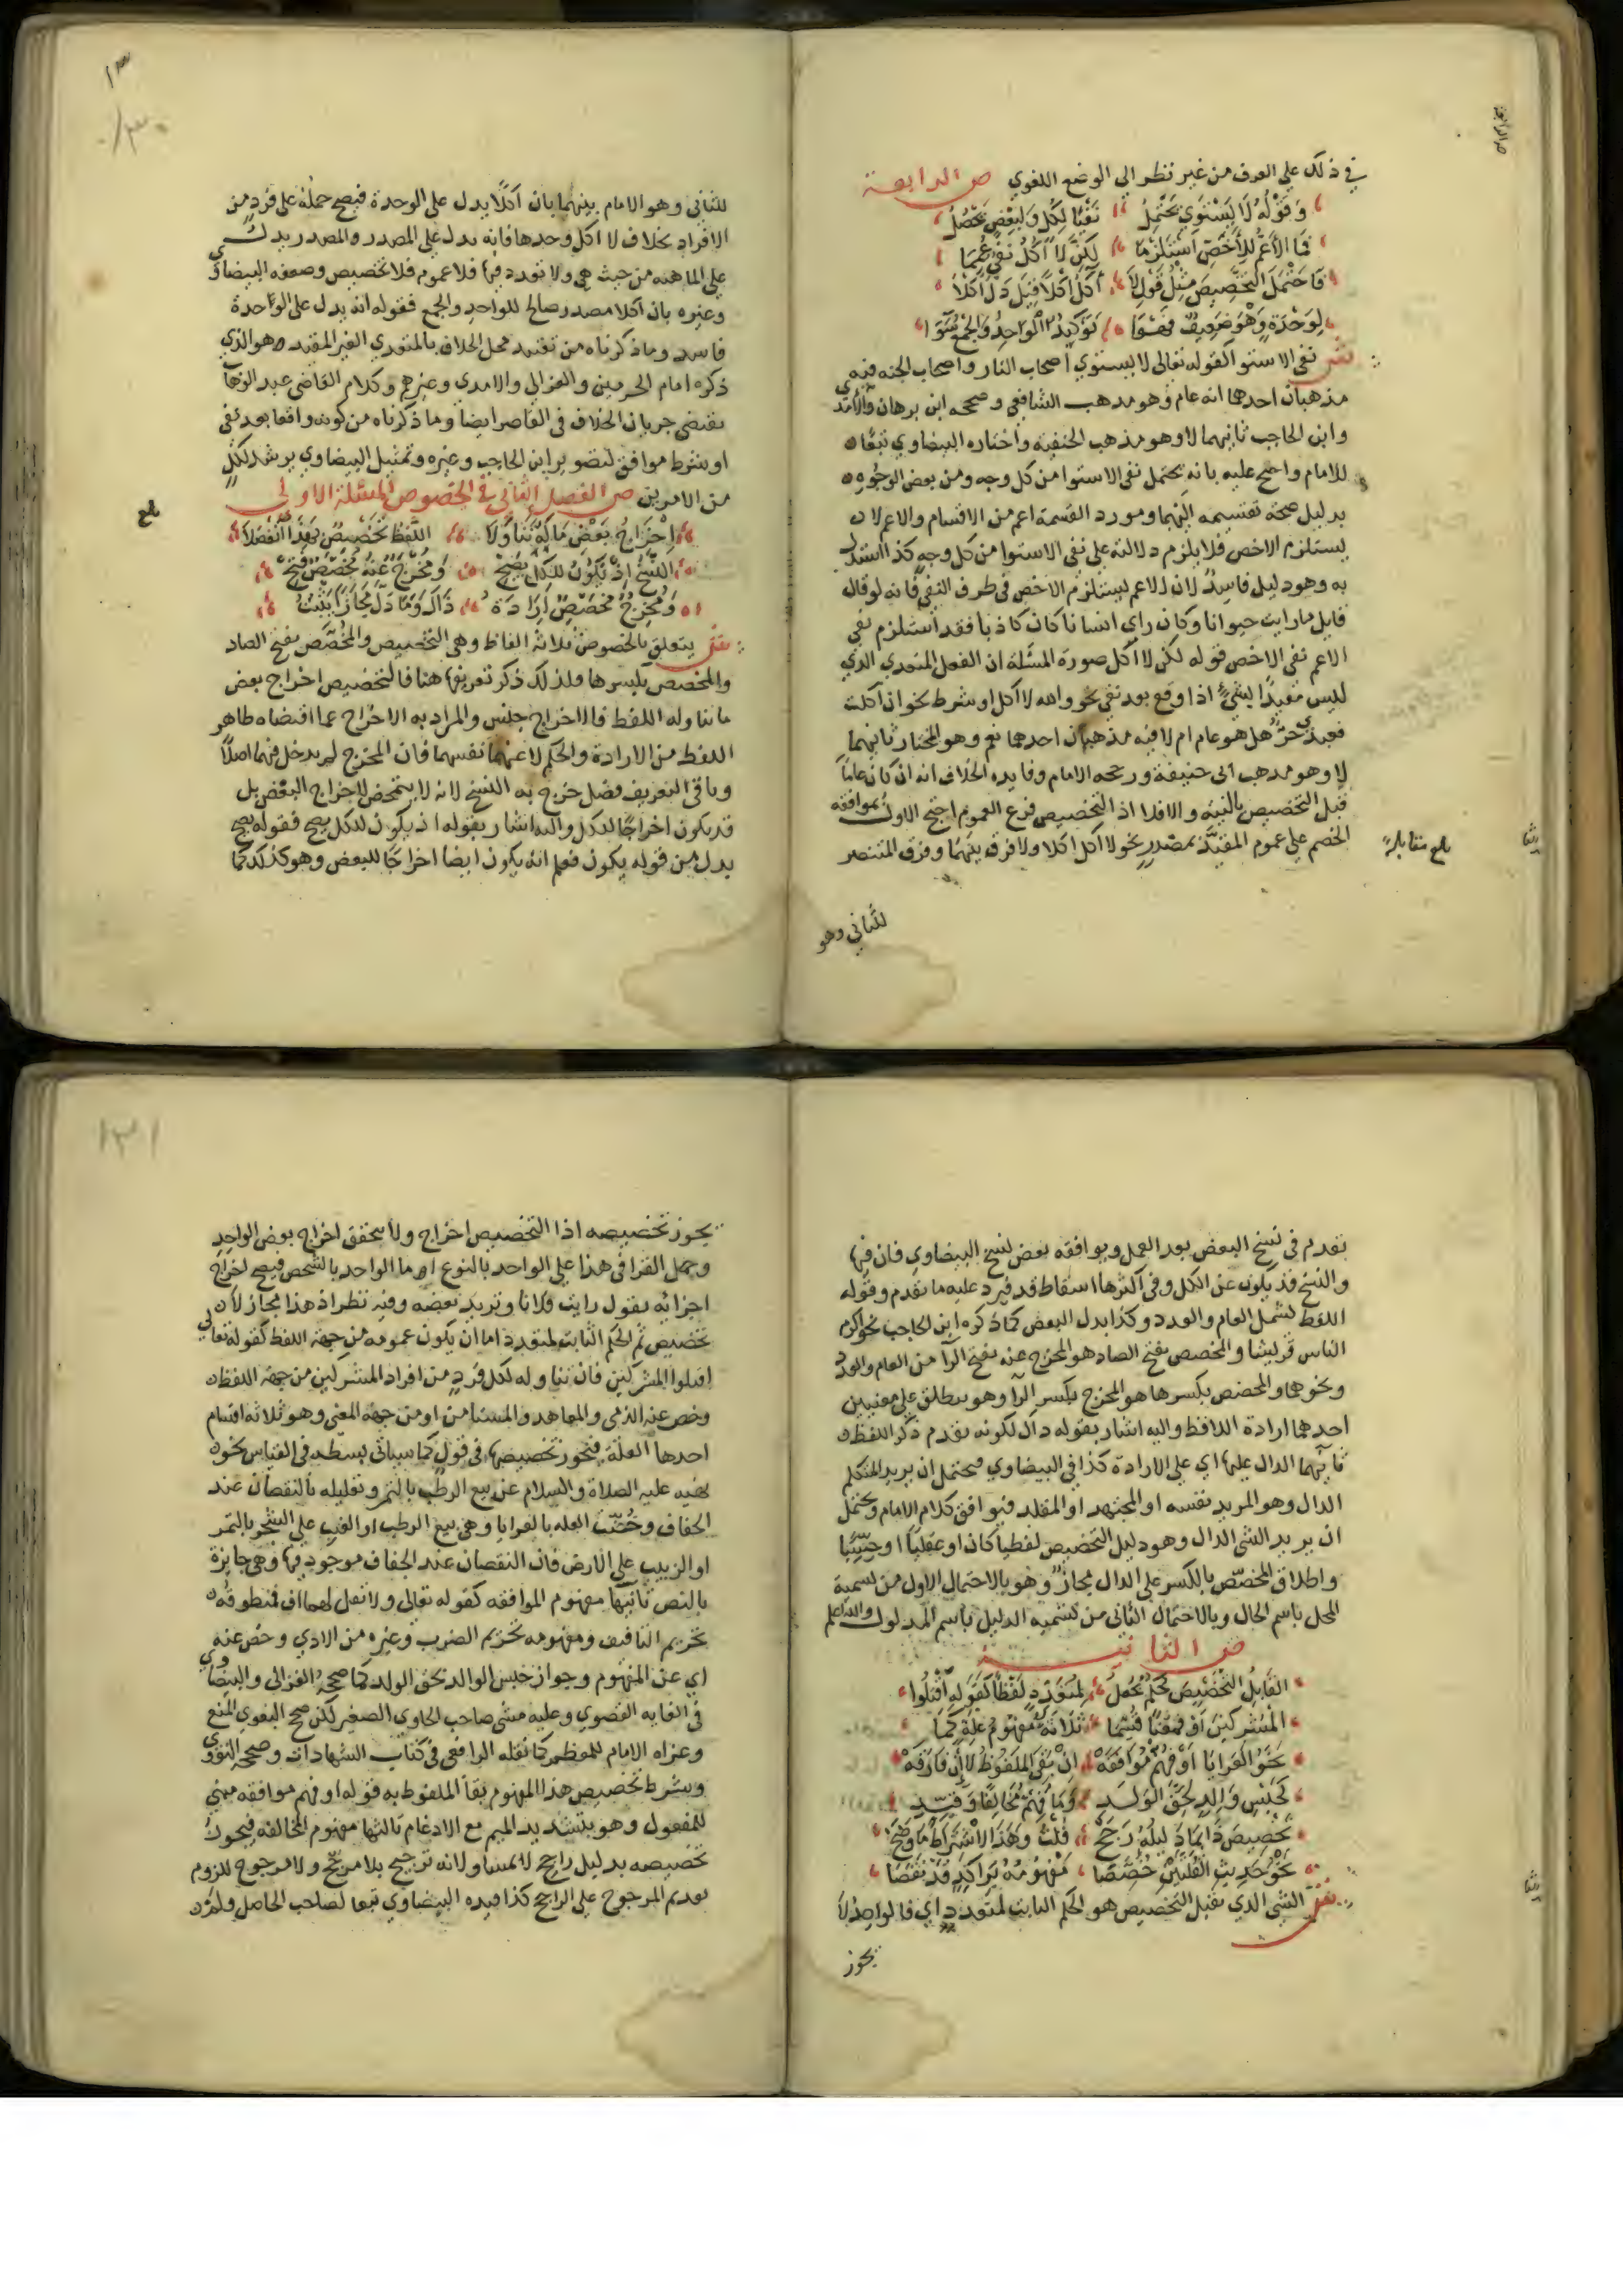 في ذلك على العرف من غير نظر الى الوضع اللغوي ص الرابعة
وقوله لا يستوي يحتمل نفيا لكل ولبعض يحصل
فما الأعم للأخص استلزما لكن لا آكل نفي عمما
فاحتمل التخصيص مثل قول لا آكل أكلا قيل دل أكلا
لوحدة وهو ضعيف توكيد الواحد والجمع
ش نفي الاستوا كقوله تعالى لا يستوي اصحاب النار واصحاب الجنه فيه
مذهبان احدهما انه عام وهو مذهب الشافعي وصححه ابن برهان والآمدي
وابن الحاجب ثانيهما لا وهو مذهب الحنفيه واختاره البيضاوي تبعا
للامام واحتج عليه بانه يحتمل نفي الاستوا من كل وجه ومن بعض الوجوه
بدليل صحة تقسيمه اليهما ومورد القسمة اعم من الاقسام والاعم لا
يستلزم الاخص فلا يلزم دلالته على نفي الاستوا من كل وجه كذا استدل
به وهو دليل فاسد لان الاعم يستلزم الاخص في طرف النفي فانه لو قال
قايل ما رايت حيوانا وكان راى انسانا كان كاذبا فقد استلزم نفي
الاعم نفي الاخص قوله لكن لا آكل صورة المسئلة ان الفعل المتعدي الذي
ليس مقيدا بشيء اذا وقع بعد نفي نحو والله لا آكل او شرط نحو ان اكلت
فعبدي حر هل هو عام ام لا فيه مذهبان احدهما نعم وهو المختار ثانيهما
لا وهو مذهب ابي حنيفة ورجحه الامام وفايده الخلاف انه ان كان عاما
قبل التخصيص بالنيه والا فلا اذ التخصيص فرع العموم احتج الاول بموافقه
الخصم على عموم المقيد بمصدر نحو لا آكل اكلا ولا فرق بينهما وفرق المنتصر
بلغ مقابلة
للثاني وهو
للثاني وهو الامام بينهما بان أكلا يدل على الوحدة فيصح حمله على فرد من
الافراد بخلاف لا آكل وحدها فانه يدل على المصدر والمصدر يدل
على الماهيه من حيث هي ولا تعدد فيها فلا عموم فلا تخصيص وضعفه البيضاوي
وغيره بان أكلا مصدر صالح للواحد والجمع فقوله انه يدل على الواحدة
فاسد وما ذكرناه من تقييد محل الخلاف بالمتعدي الغير المقيد هو الذي
ذكره امام الحرمين والغزالي والآمدي وغيرهم وكلام القاضي عبد الوهاب
يقتضي جريان الخلاف في القاصر ايضا وما ذكرناه من كونه واقعا بعد نفي
او شرط موافق لتصوير ابن الحاجب وغيره وتمثيل البيضاوي يرشد لكل
من الامرين ص الفصل الثاني في الخصوص المسئلة الاولى
إخراج بعض ما له تناولا اللفظ تخصيص بهذا انفصلا
النسخ إذ يكون للكل يصح ومخرج عنه مخصص فتح
ومخرج مخصص إرادة ذاك وما دل مجازا يثبت
ش يتعلق بالخصوص ثلاثة الفاظ وهي التخصيص والمخصص بفتح الصاد
والمخصص بكسرها ولذلك ذكر تعريفها هنا فالتخصيص اخراج بعض
ما يتناوله اللفظ فالاخراج جنس والمراد به الاخراج عما اقتضاه ظاهر
اللفظ من الارادة والحكم لا عنهما نفسهما فان المخرج لم يدخل فيهما اصلا
وباقي التعريف فصل خرج به النسخ لانه لا يتمحض لاخراج البعض بل
قد يكون اخراجا للكل واليه اشار بقوله اذ يكون للكل يصح فقوله يصح
بدل من قوله يكون فعلم انه يكون ايضا اخراجا للبعض وهو كذلك كما
بلغ
١٣٠
تقدم في نسخ البعض بعد العمل ويوافقه بعض نسخ البيضاوي فان فيها
والنسخ قد يكون عن الكل وفي اكثرها اسقاط قد فيرد عليه ما تقدم وقوله
اللفظ يشمل العام والعدد وكذا بدل البعض كما ذكره ابن الحاجب نحو اكرم
الناس قريشا والمخصص بفتح الصاد هو المخرج عنه بفتح الرآ من العام والعدد
ونحوهما والمخصص بكسرها هو المخرج بكسر الرآ وهو يطلق على معنيين
احدهما ارادة اللافظ واليه اشار بقوله ذاك لكونه تقدم ذكر اللفظ
ثانيهما الدال عليها اي على الارادة كذا في البيضاوي فيحتمل ان يريد المتكلم
الدال وهو المريد نفسه او المجتهد او المقلد فيوافق كلام الامام ويحتمل
ان يريد الشي الدال وهو دليل التخصيص لفظيا كان او عقليا او حسيا
واطلاق المخصص بالكسر على الدال مجاز وهو بالاحتمال الاول من تسمية
المحل باسم الحال وبالاحتمال الثاني من تسميه الدليل باسم المدلول والله اعلم
ص الثانيـة
القابل التخصيص حكم يجعل لمتعدد لفظا كقوله اقتلوا
المشركين أو معنا قسما ثلاثة مفهوم علة كما
نحو العرايا أو فهم موافقة إن بقي الملفوظ لا إن فارقه
كحبس والد لحق الولد وما فهم مخالفا وقيد
تخصيص ذا بما دليله رجح قلت وهذا الاشتراط ما وضح
نحو حديث القلتين خصصا مفهومه براكد قد نقصا
ش الشي الذي يقبل التخصيص هو الحكم الثابت لمتعدد اي فالواحد لا
يجوز
يجوز تخصيصه اذا التخصيص اخراج ولا يتحقق اخراج بعض الواحد
وحمل القرافي هذا على الواحد بالنوع اما الواحد بالشخص فيصح اخراج
اجزائه يقول رايت فلانا وتريد بعضه وفيه نظر اذ هذا مجاز لا
تخصيص ثم الحكم الثابت لمتعدد اما ان يكون عمومه من جهة اللفظ كقوله تعالى
اقتلوا المشركين فان تناوله لكل فرد من افراد المشركين من جهة اللفظ
وخص عنه الذمي والمعاهد والمستامن او من جهة المعنى وهو ثلاثه اقسام
احدها العلة فيجوز تخصيصها في قول كما سياتي بسطه في القياس نحو
نهيه عليه الصلاة والسلام عن بيع الرطب بالتمر وتعليله بالنقصان عند
الجفاف وخصت العله بالعرايا وهي بيع الرطب او العنب على الشجر بالتمر
او الزبيب على الارض فان النقصان عند الجفاف موجود فيها وهي جايزة
بالنص ثانيها مفهوم الموافقه كقوله تعالى ولا تقل لهما اف فمنطوقه
تحريم التافيف ومفهومه تحريم الضرب وغيره من الاذي وخص عنه
اي عن المفهوم وجواز حبس الوالد لحق الولد كما صححه الغزالي والبيضاوي
في الغايه القصوي وعليه مشى صاحب الحاوي الصغير لكن صحح البغوي المنع
وعزاه الامام للمعظم كما نقله الرافعي في كتاب الشهادات وصححه النووي
وشرط تخصيص هذا المفهوم بقا الملفوظ به قوله او فهم موافقه مبني
للمفعول وهو بتشديد الميم مع الادغام ثالثها مفهوم المخالفه فيجوز
تخصيصه بدليل راجح لا مساو لانه ترجيح بلا مرجح ولا مرجوح للزوم
تقديم المرجوح على الراجح كذا قيده البيضاوي تبعا لصاحب الحاصل ولم
١٣١